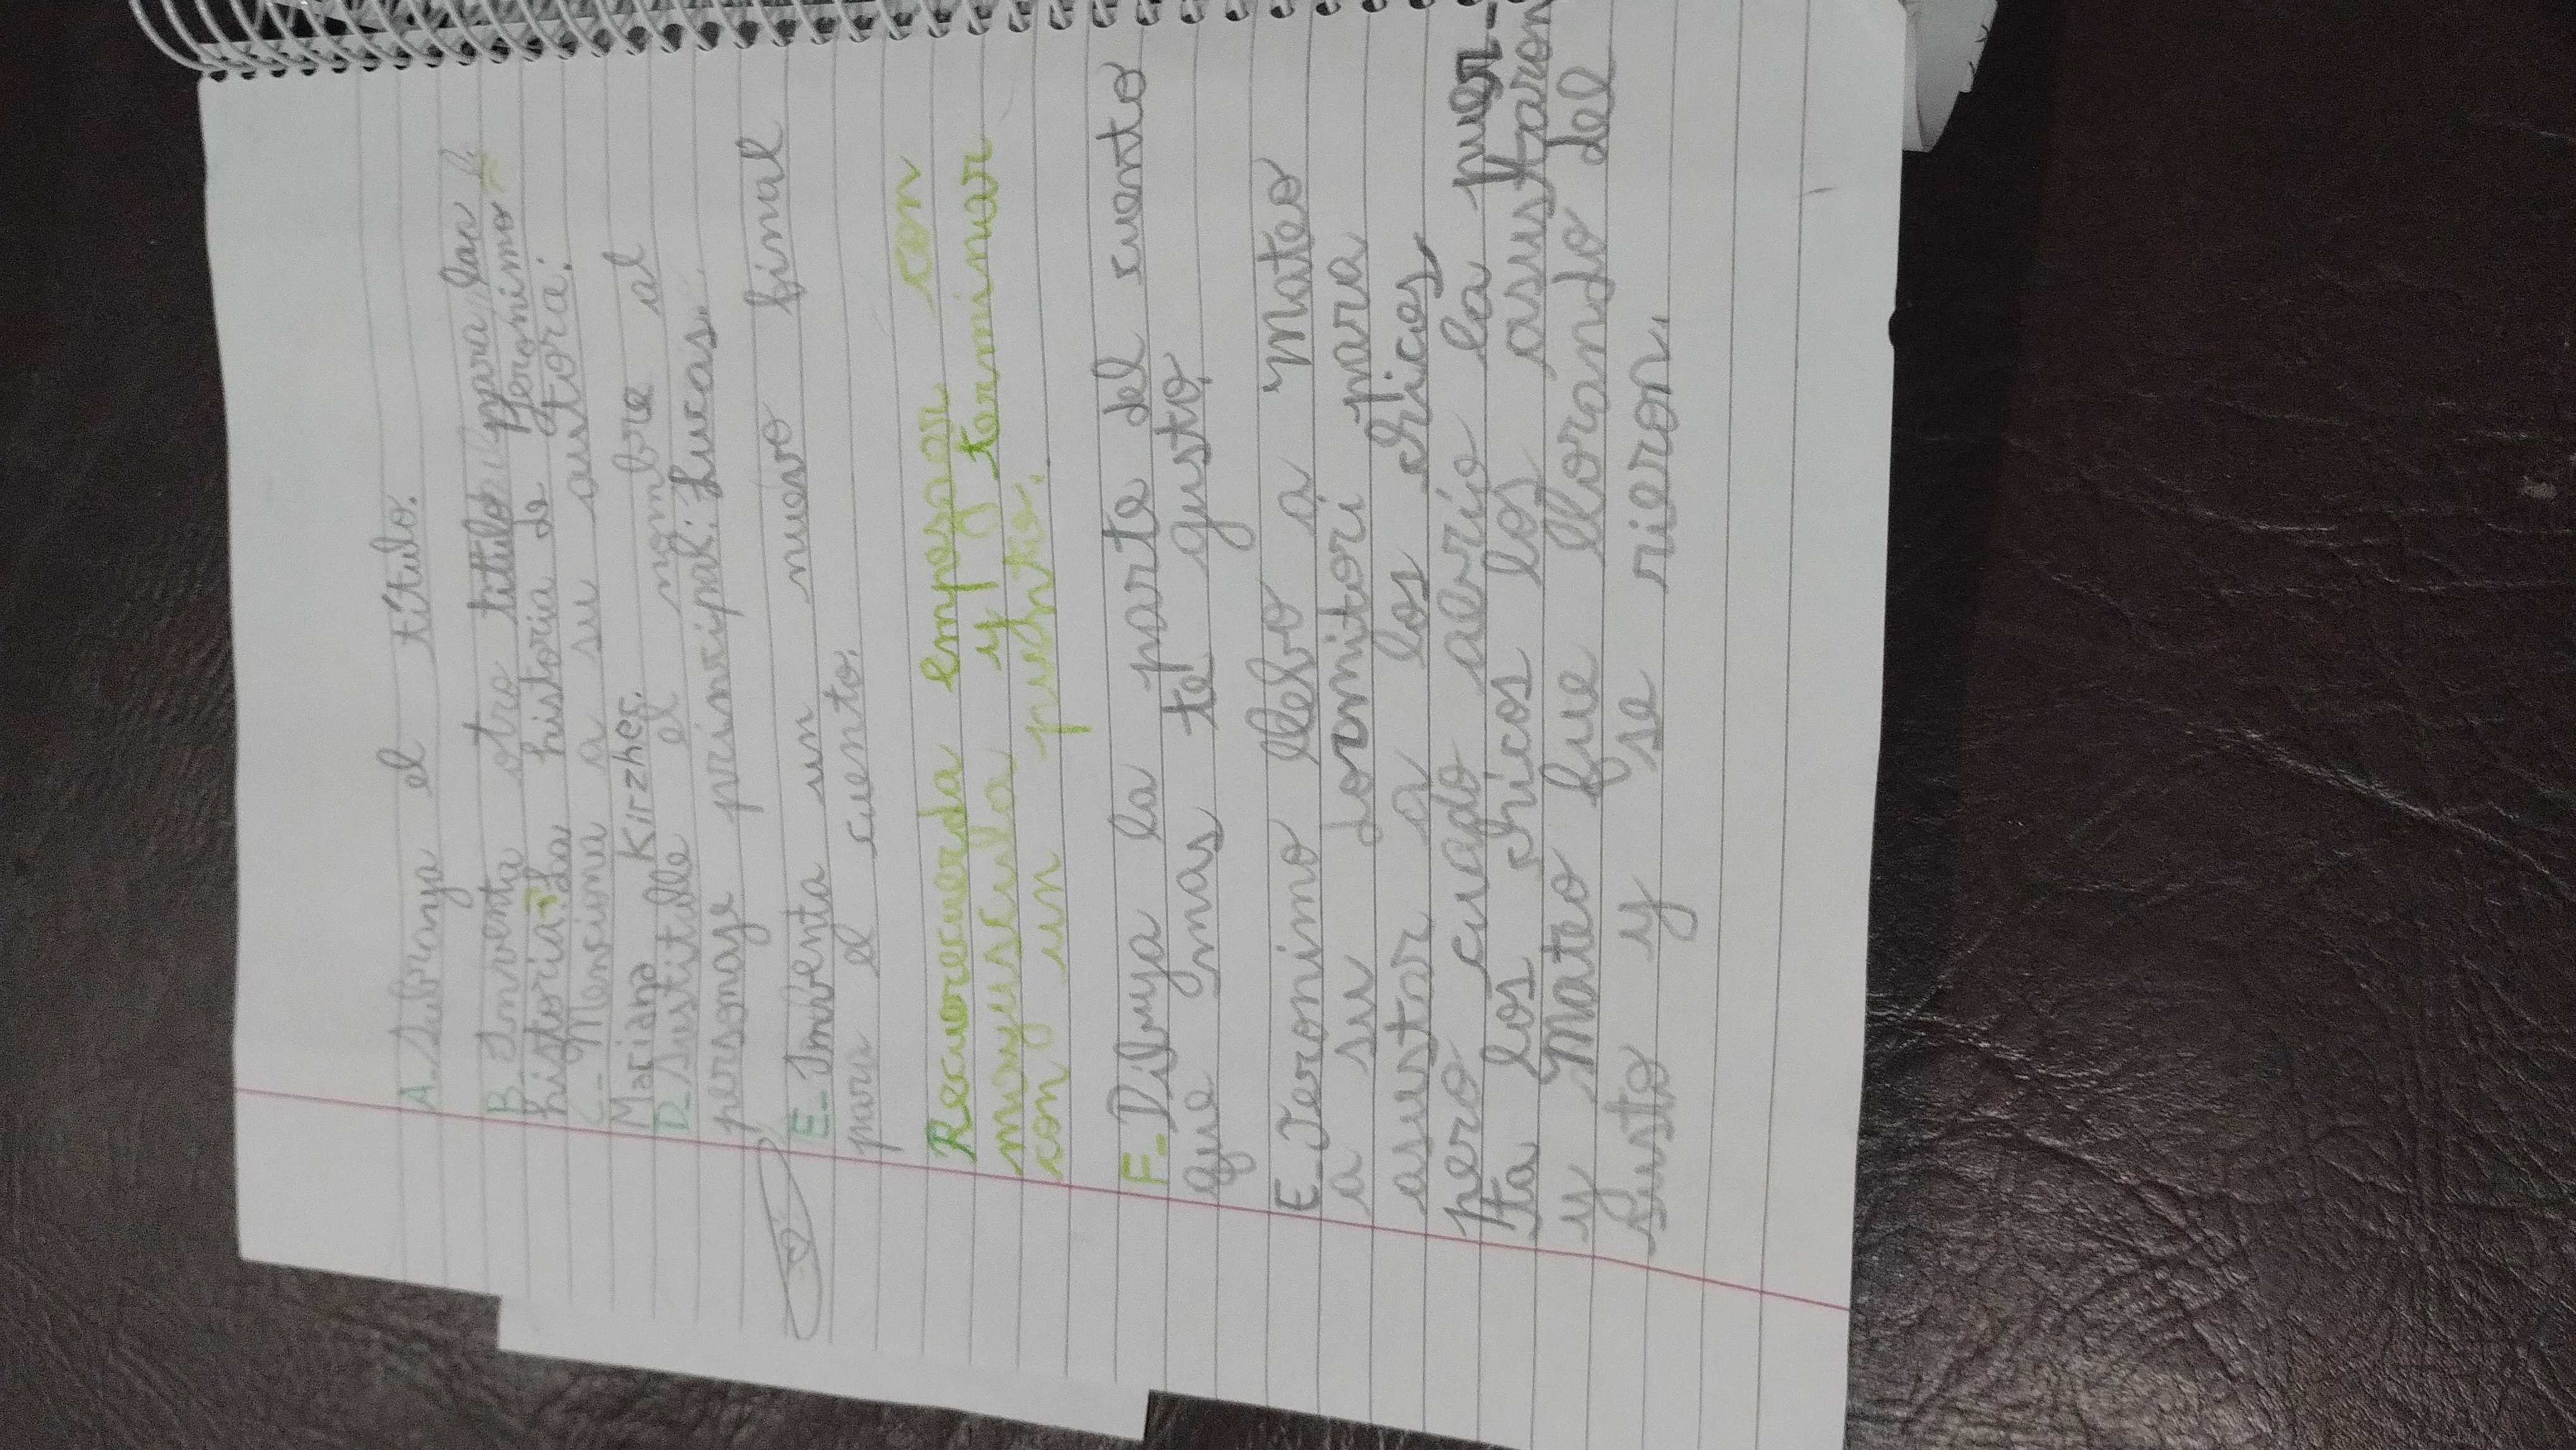 A. Subraya el título.
B. Imventa otro titulo para la
historia: La historia de Jeronimo
C. Mensiona a su autora:
Mariana Kirzher.
D. Sustitulle el nombre al
personaje prinsipal: Lucas.
E. Imbenta un nuevo final
para el cuento.
Recuorecuerda empesar con
mayuscula y terminar
con un punto.
F. Dibuya la parte del cuento
que mas te gusto.
E. Jeronimo llebo a Mateo
a su dormitori para
asustar a los chicos
pero cuado abrio la puer-
ta los chicos los asustaron
y Mateo fue llorando del
susto y se rieron.